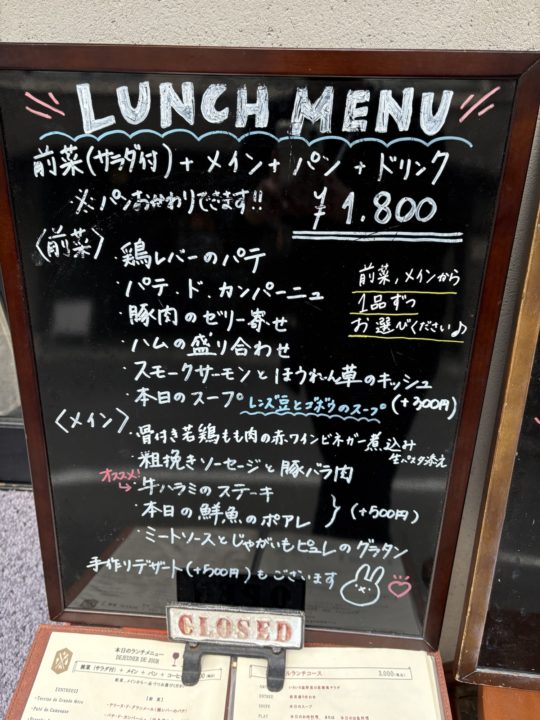 LUNCH MENU
前菜(サラダ付)+メイン+パン+ドリンク
※パンおかわりできます!!
¥1.800
〈前菜〉
・鶏レバーのパテ
・パテ.ド.カンパーニュ
・豚肉のゼリー寄せ
・ハムの盛り合わせ
・スモークサーモンとほうれん草のキッシュ
・本日のスープ レンズ豆とゴボウのスープ (+300円)
前菜,メインから
1品ずつ
お選びください♪
〈メイン〉
・骨付き若鶏もも肉の赤ワインビネガー煮込み
生パスタ添え
・粗挽きソーセージと豚バラ肉
オススメ!
・牛ハラミのステーキ
・本日の鮮魚のポアレ
(+500円)
・ミートソースとじゃがいもピュレのグラタン
手作りデザート(+500円)もございます
CLOSED
本日のランチメニュー
DEJEUNER DE JOUR
前菜(サラダ付)+メイン+パン+コーヒ
ルランチコース
3,000